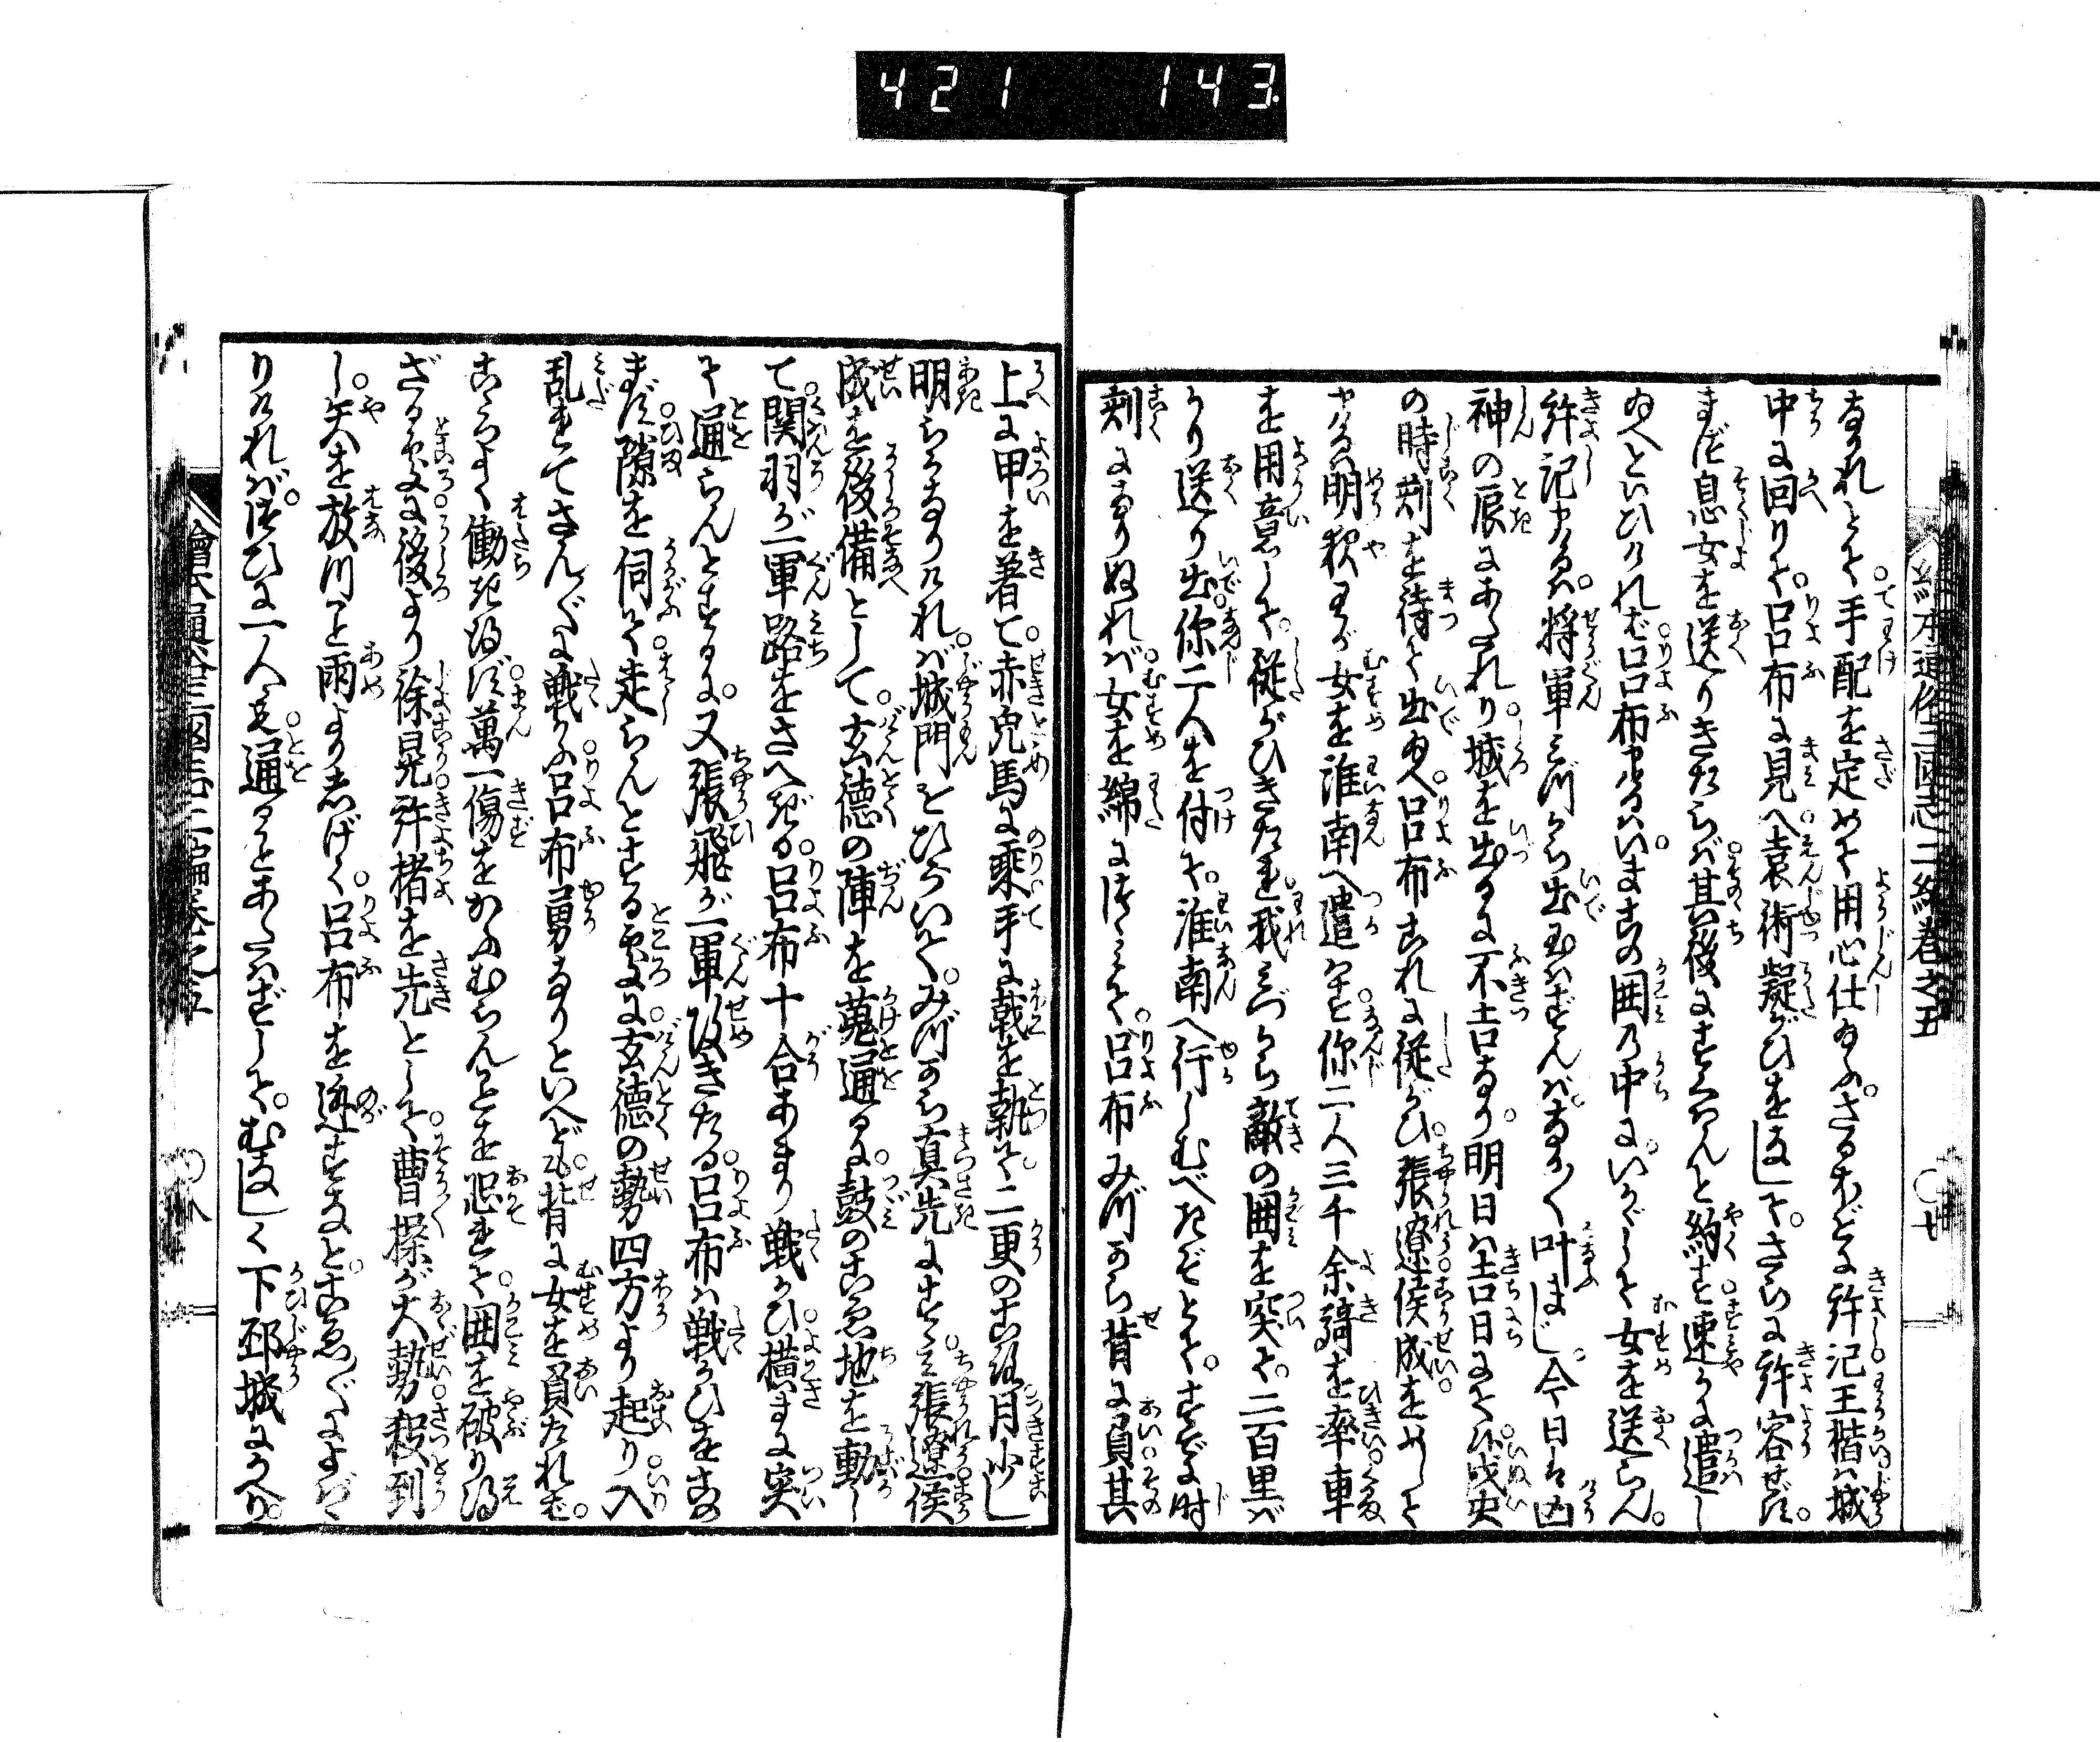 421 143
絵本通俗三國志二編巻之五
なられとて手配を定めて用心仕ゐふ。さるほどに許汜王楷ハ城
中に回りて。呂布に見へ袁術疑がひをなして。さらに許容せず。
まづ息女を送りきたらバ其後にすくはんと約す速かに遣し
ゐへといひけれバ呂布申けるハ。いまこの囲の中に。いかゞして女を送らん。
許汜申るハ。将軍ミづから出玉ハずんバ。なかく叶まじ。今日ハ凶
神の辰にあたれり城を出るに不吉なり。明日ハ吉日にて候戌亥
の時刻を待て出玉へ呂布これに従がひ。張遼侯成をめして
申けるハ明夜わが女を淮南へ遣ハす。你二人三千余騎を率車
を用意して。従がひきたれ我ミづから敵の囲を突て。二百里バ
かり送り出。你二人を付て。淮南へ行しむべきぞとて。すでに時
刻になりぬれバ女を綿につゝミて。呂布みづから背に負其
上に甲を著て。赤兎馬に乗手に戟を執て。二更のころ月少し
明らかなりけれバ城門をひらいて。みづから真先にすゝミ張遼侯
成を後備として。玄徳の陣を蒐通るに。鼓のこゑ地を動し
て。関羽が一軍路をさへぎる。呂布十合あまり戦ひ横まに突
て通らんとするに。又張飛が一軍攻きたる。呂布ハ戦かひをこの
まず。隙を伺て走らんとする処に。玄徳の勢四方より起り入
乱れてさんざに戦かふ呂布勇なりといへども。背に女を負たれバ。
こゝろよく働き得ず。萬一傷をかふむらんことを恐れて。囲を破り得
ざる処に。後より徐晃許褚を先として。曹操が大勢殺到
し。矢を放つこと雨より志げく。呂布を逃すなと。こゑ〲によばゝ
りけれバ。つひに一人も通ることあたハずして。むなしく下邳城にかへり。
繪本通俗三国志二編巻之五